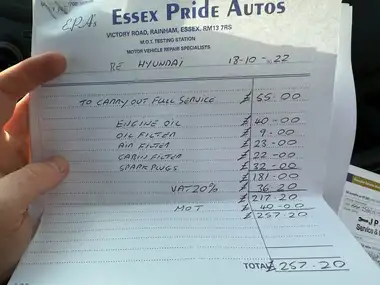 EPA's
ESSEX PRIDE AUTOS
VICTORY ROAD, RAINHAM, ESSEX, RM13 7RS
M.O.T. TESTING STATION
MOTOR VEHICLE REPAIR SPECIALISTS
RE HYUNDAI 18-10-22
TO CARRY OUT FULL SERVICE £ 55.00
ENGINE OIL £ 40-00
OIL FILTER £ 9.00
AIR FILTER £ 23-00
CABIN FILTER £ 22-00
SPARK PLUGS £ 32-00
£ 181.00
VAT 20% £ 36.20
£ 217.20
MOT £ 40-00
£ 257.20
TOTAL £ 257.20